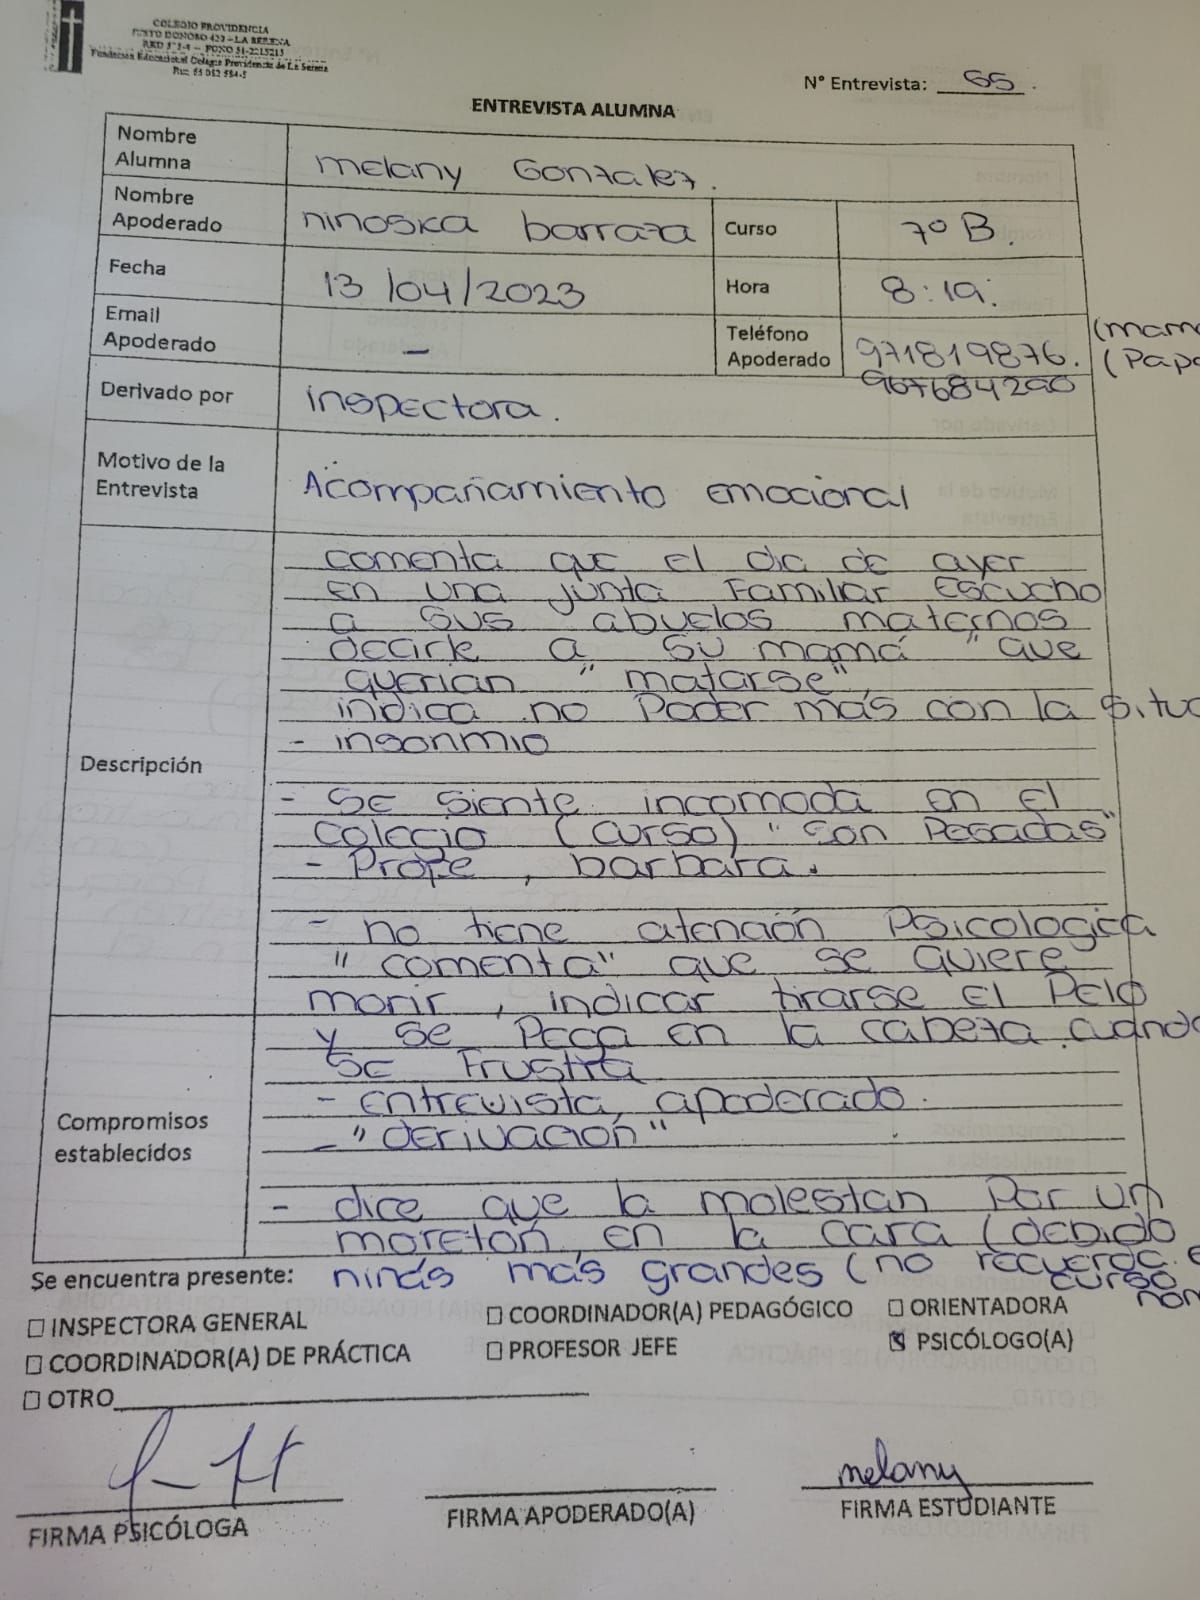 COLEGIO PROVIDENCIA
JUSTO DONOSO 420 - LA SERENA
FONO 51-2215213
Fundacion Educacional Colegio Providencia de La Serena
N° Entrevista: 65.
ENTREVISTA ALUMNA
Nombre Alumna melany Gonzalez.
Nombre Apoderado ninoska barraza Curso 7º B.
Fecha 13/04/2023 Hora 8:19.
Email Apoderado - Teléfono Apoderado 971819876. (mamá
967684290 (Papá
Derivado por inspectora.
Motivo de la Entrevista Acompañamiento emocional
Descripción
comenta que el dia de ayer
En una junta Familiar Escucho
a sus abuelos maternos
decirle a su mamá "que
querian "matarse"
indica no Poder más con la situa
- insonmio
- SE siente incomoda en el
colegio (curso) "son Pesadas"
- Profe, barbara.
- no tiene atención Psicologica
"comenta" que se quiere
morir, indicar tirarse el Pelo
y se pega en la cabeza cuando
SE Frustra
Compromisos establecidos
- entrevista apoderado.
- "derivación"
- dice que la molestan Por un
moreton en la cara (debido
Se encuentra presente: ninás más grandes (no recuerda
curso
nom
☐ INSPECTORA GENERAL ☐ COORDINADOR(A) PEDAGÓGICO ☐ ORIENTADORA
☐ COORDINADOR(A) DE PRÁCTICA ☐ PROFESOR JEFE ☒ PSICÓLOGO(A)
☐ OTRO
melany
FIRMA PSICÓLOGA FIRMA APODERADO(A) FIRMA ESTUDIANTE